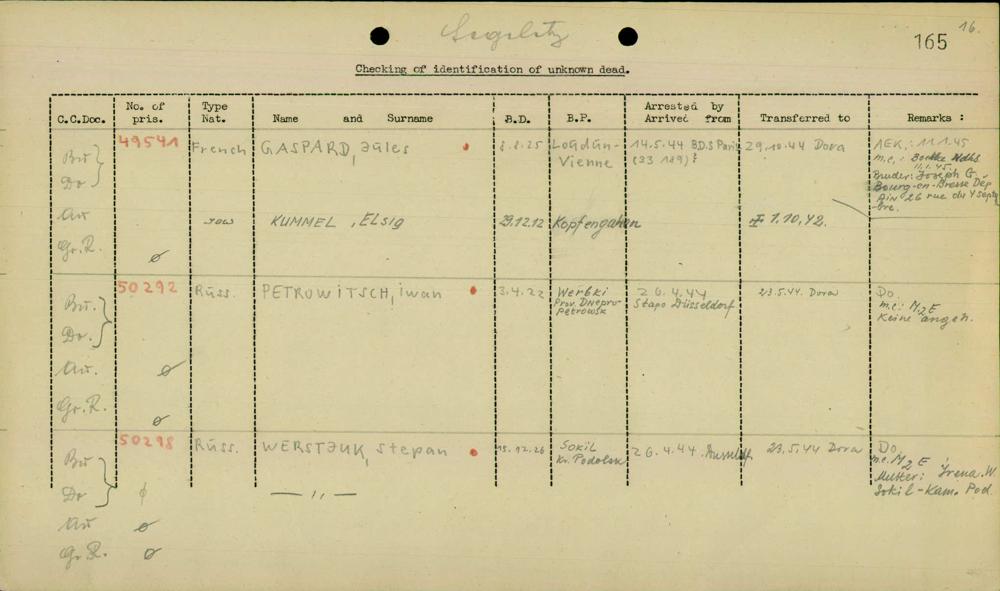 Segeletz
16.
165
Checking of identification of unknown dead.
C.C.Doc. No. of pris. Type Nat. Name and Surname B.D. B.P. Arrested by Arrived from Transferred to Remarks :
Bu Do 49541 French GASPARD, Jules 8.8.25 Loudun-Vienne 14.5.44 B.D.S Paris (33 189) 29.10.44 Dora AEK.: 11.1.45
m.e.: Boelke Ndhs
11.1.45.
Bruder: Joseph G.
Bourg-en-Bresse Dép
Ain 26 rue du 4 Septembre.
Au Jew KUMMEL, ELsig 29.12.12 Kopfengahen 1.10.42.
Gr.R. ø
Bu. Do. 50292 Russ. PETROWITSCH, iwan 3.4.22 Werbki Prov. Dnepropetrowsk 26.4.44 Stapo Düsseldorf 23.5.44 Dora Do.
m.e: M2E
Keine angeh.
Au. ø
Gr.R. ø
Bu 50298 Russ. WERSTJUK, Stepan 15.12.26 Sokil Kr. Podolsk 26.4.44 Düsseldf 23.5.44 Dora Do.
m.e. M2E
Mutter: Irena W.
Sokil-Kam. Pod.
Do ø — " —
Au ø
Gr.R. ø